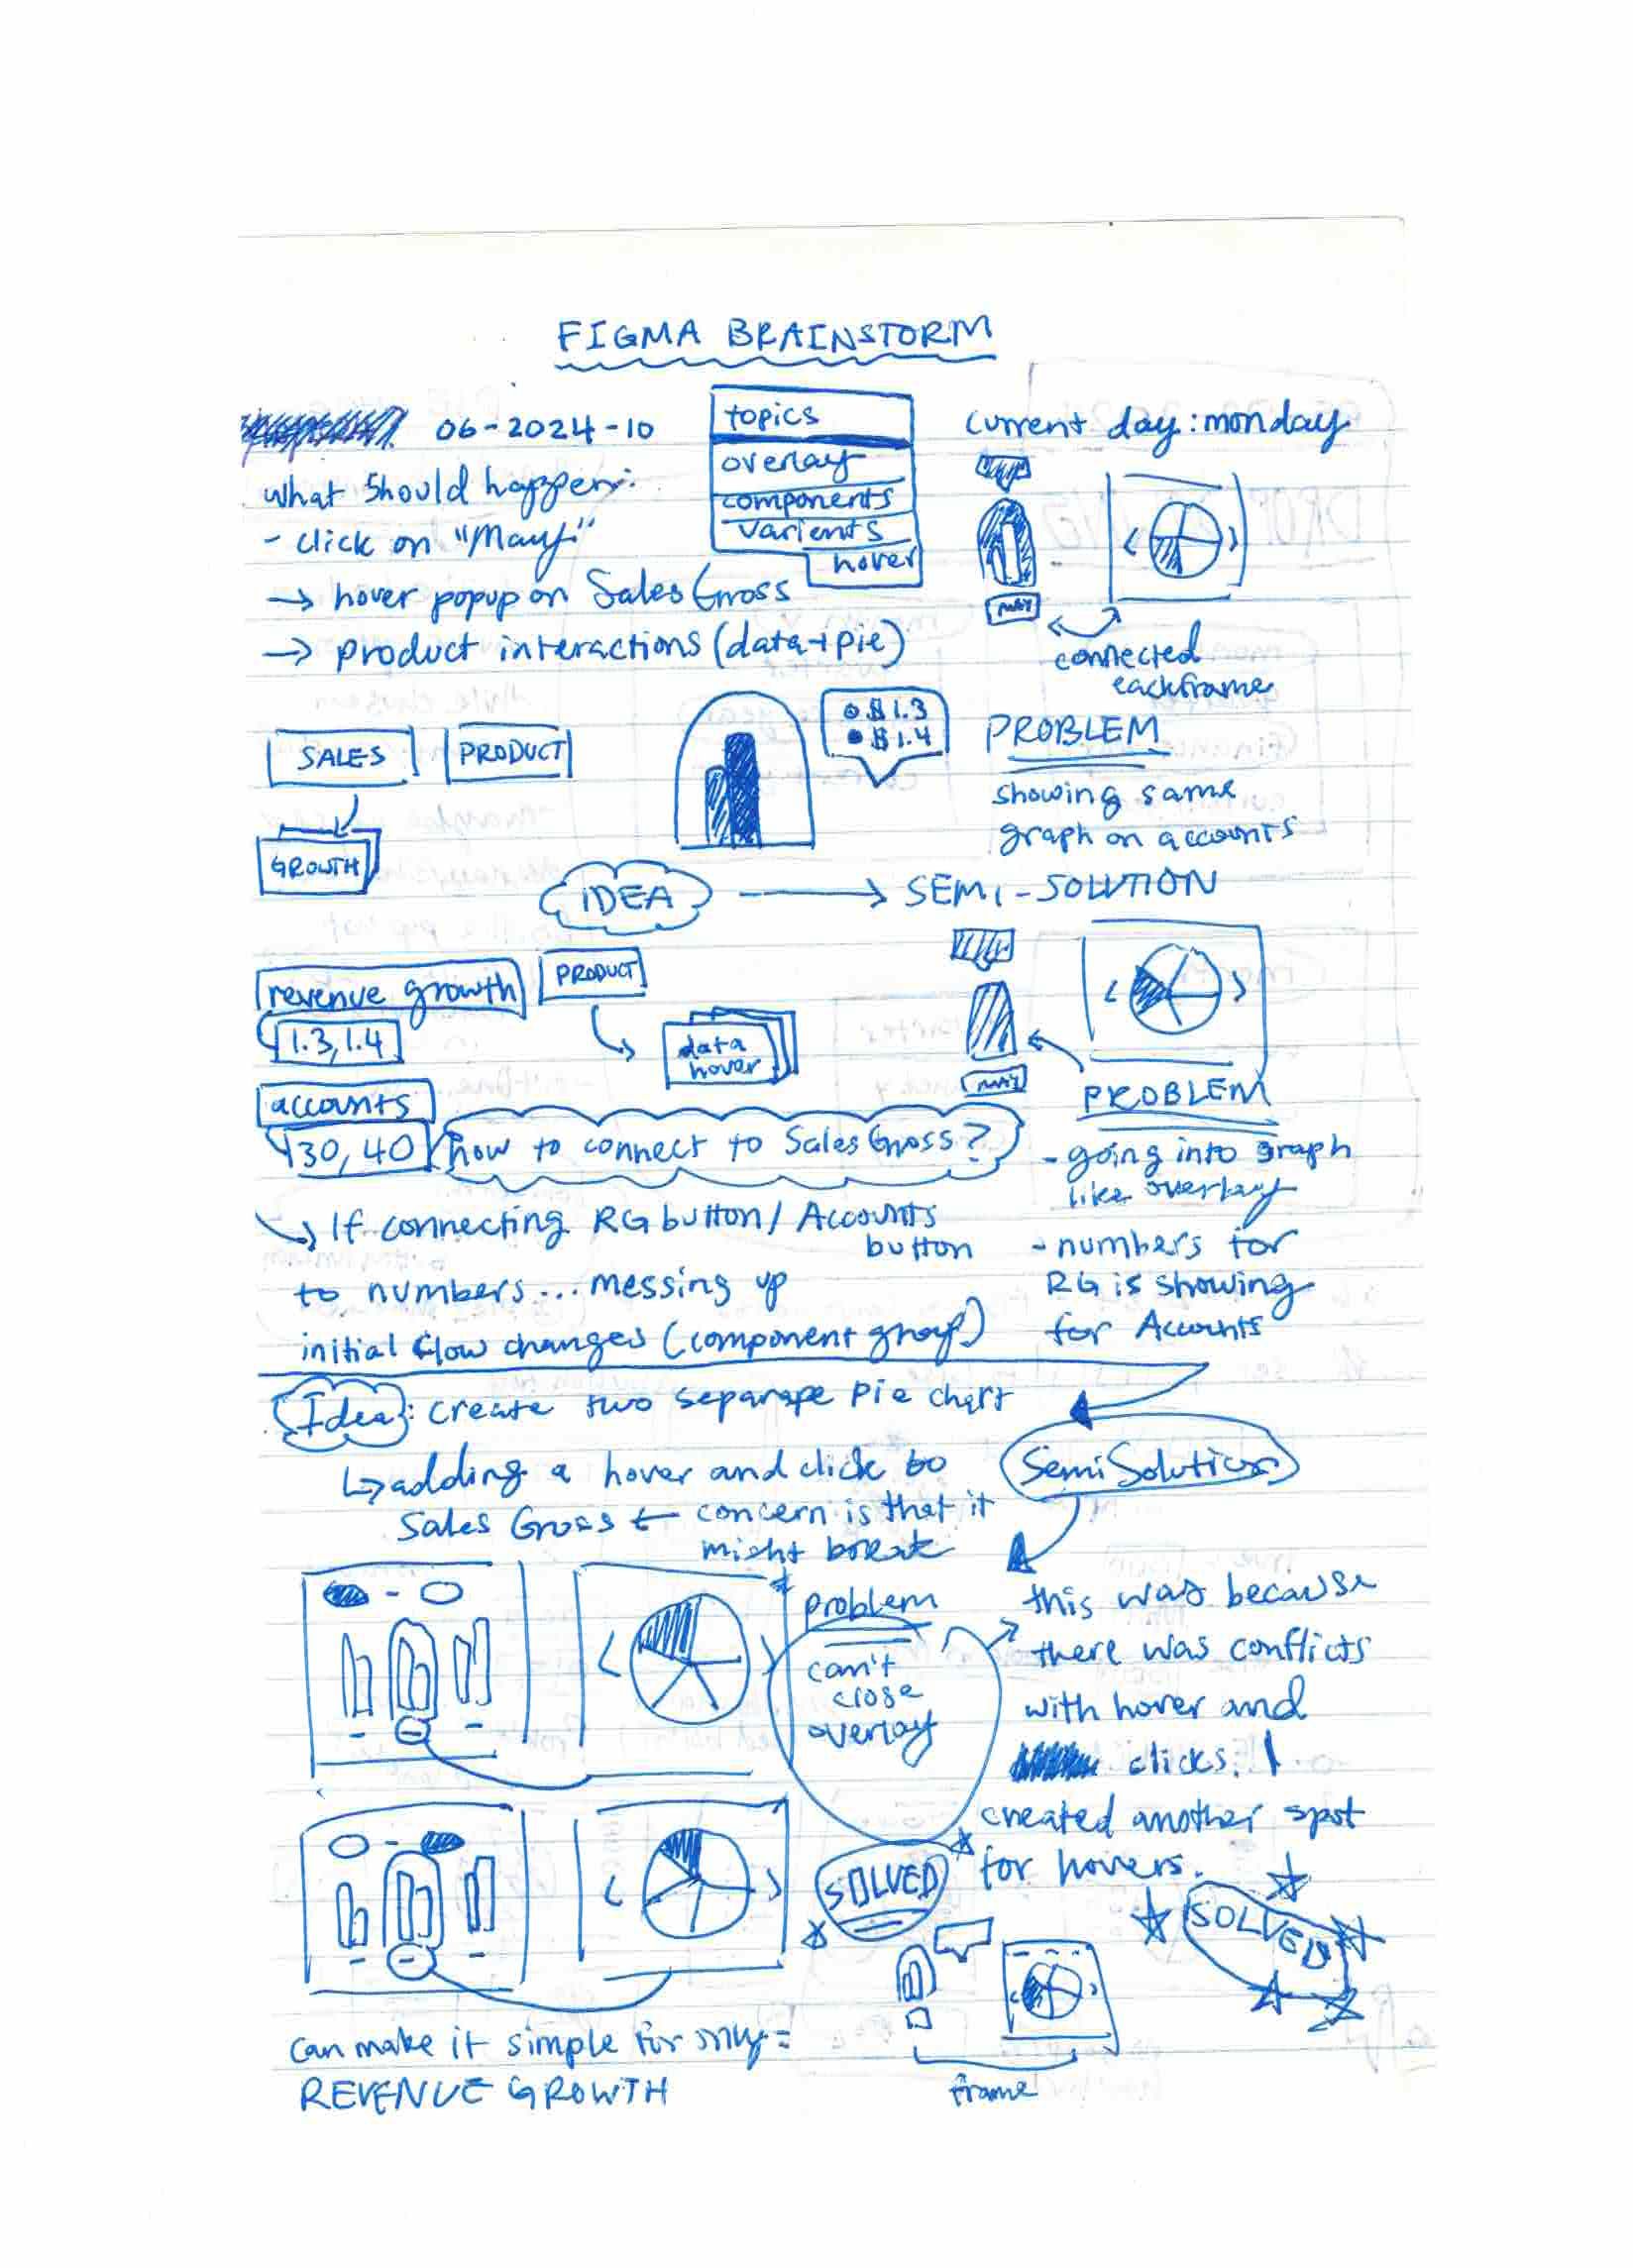 FIGMA BRAINSTORM
06-2024-10
topics
overlay
components
varients
hover
current day: monday
what should happen:
- click on "May"
→ hover popup on Sales Gross
→ product interactions (data + pie)
MAY
connected
each frame
SALES
PRODUCT
GROWTH
$1.3
$1.4
PROBLEM
showing same
graph on accounts
IDEA → SEMI-SOLUTION
revenue growth
1.3, 1.4
PRODUCT
data
hover
accounts
30, 40
how to connect to Sales Gross?
MAY
PROBLEM
- going into graph
like overlay
- numbers for
RG is showing
for Accounts
If connecting RG button / Accounts
button
to numbers... messing up
initial flow changes (component group)
Idea: create two separape pie chart
adding a hover and click to
Sales Gross ← concern is that it
might break
Semi Solution
problem
can't
close
overlay
this was because
there was conflicts
with hover and
clicks. I
created another spot
for hovers.
SOLVED
SOLVED
frame
can make it simple for only =
REVENUE GROWTH